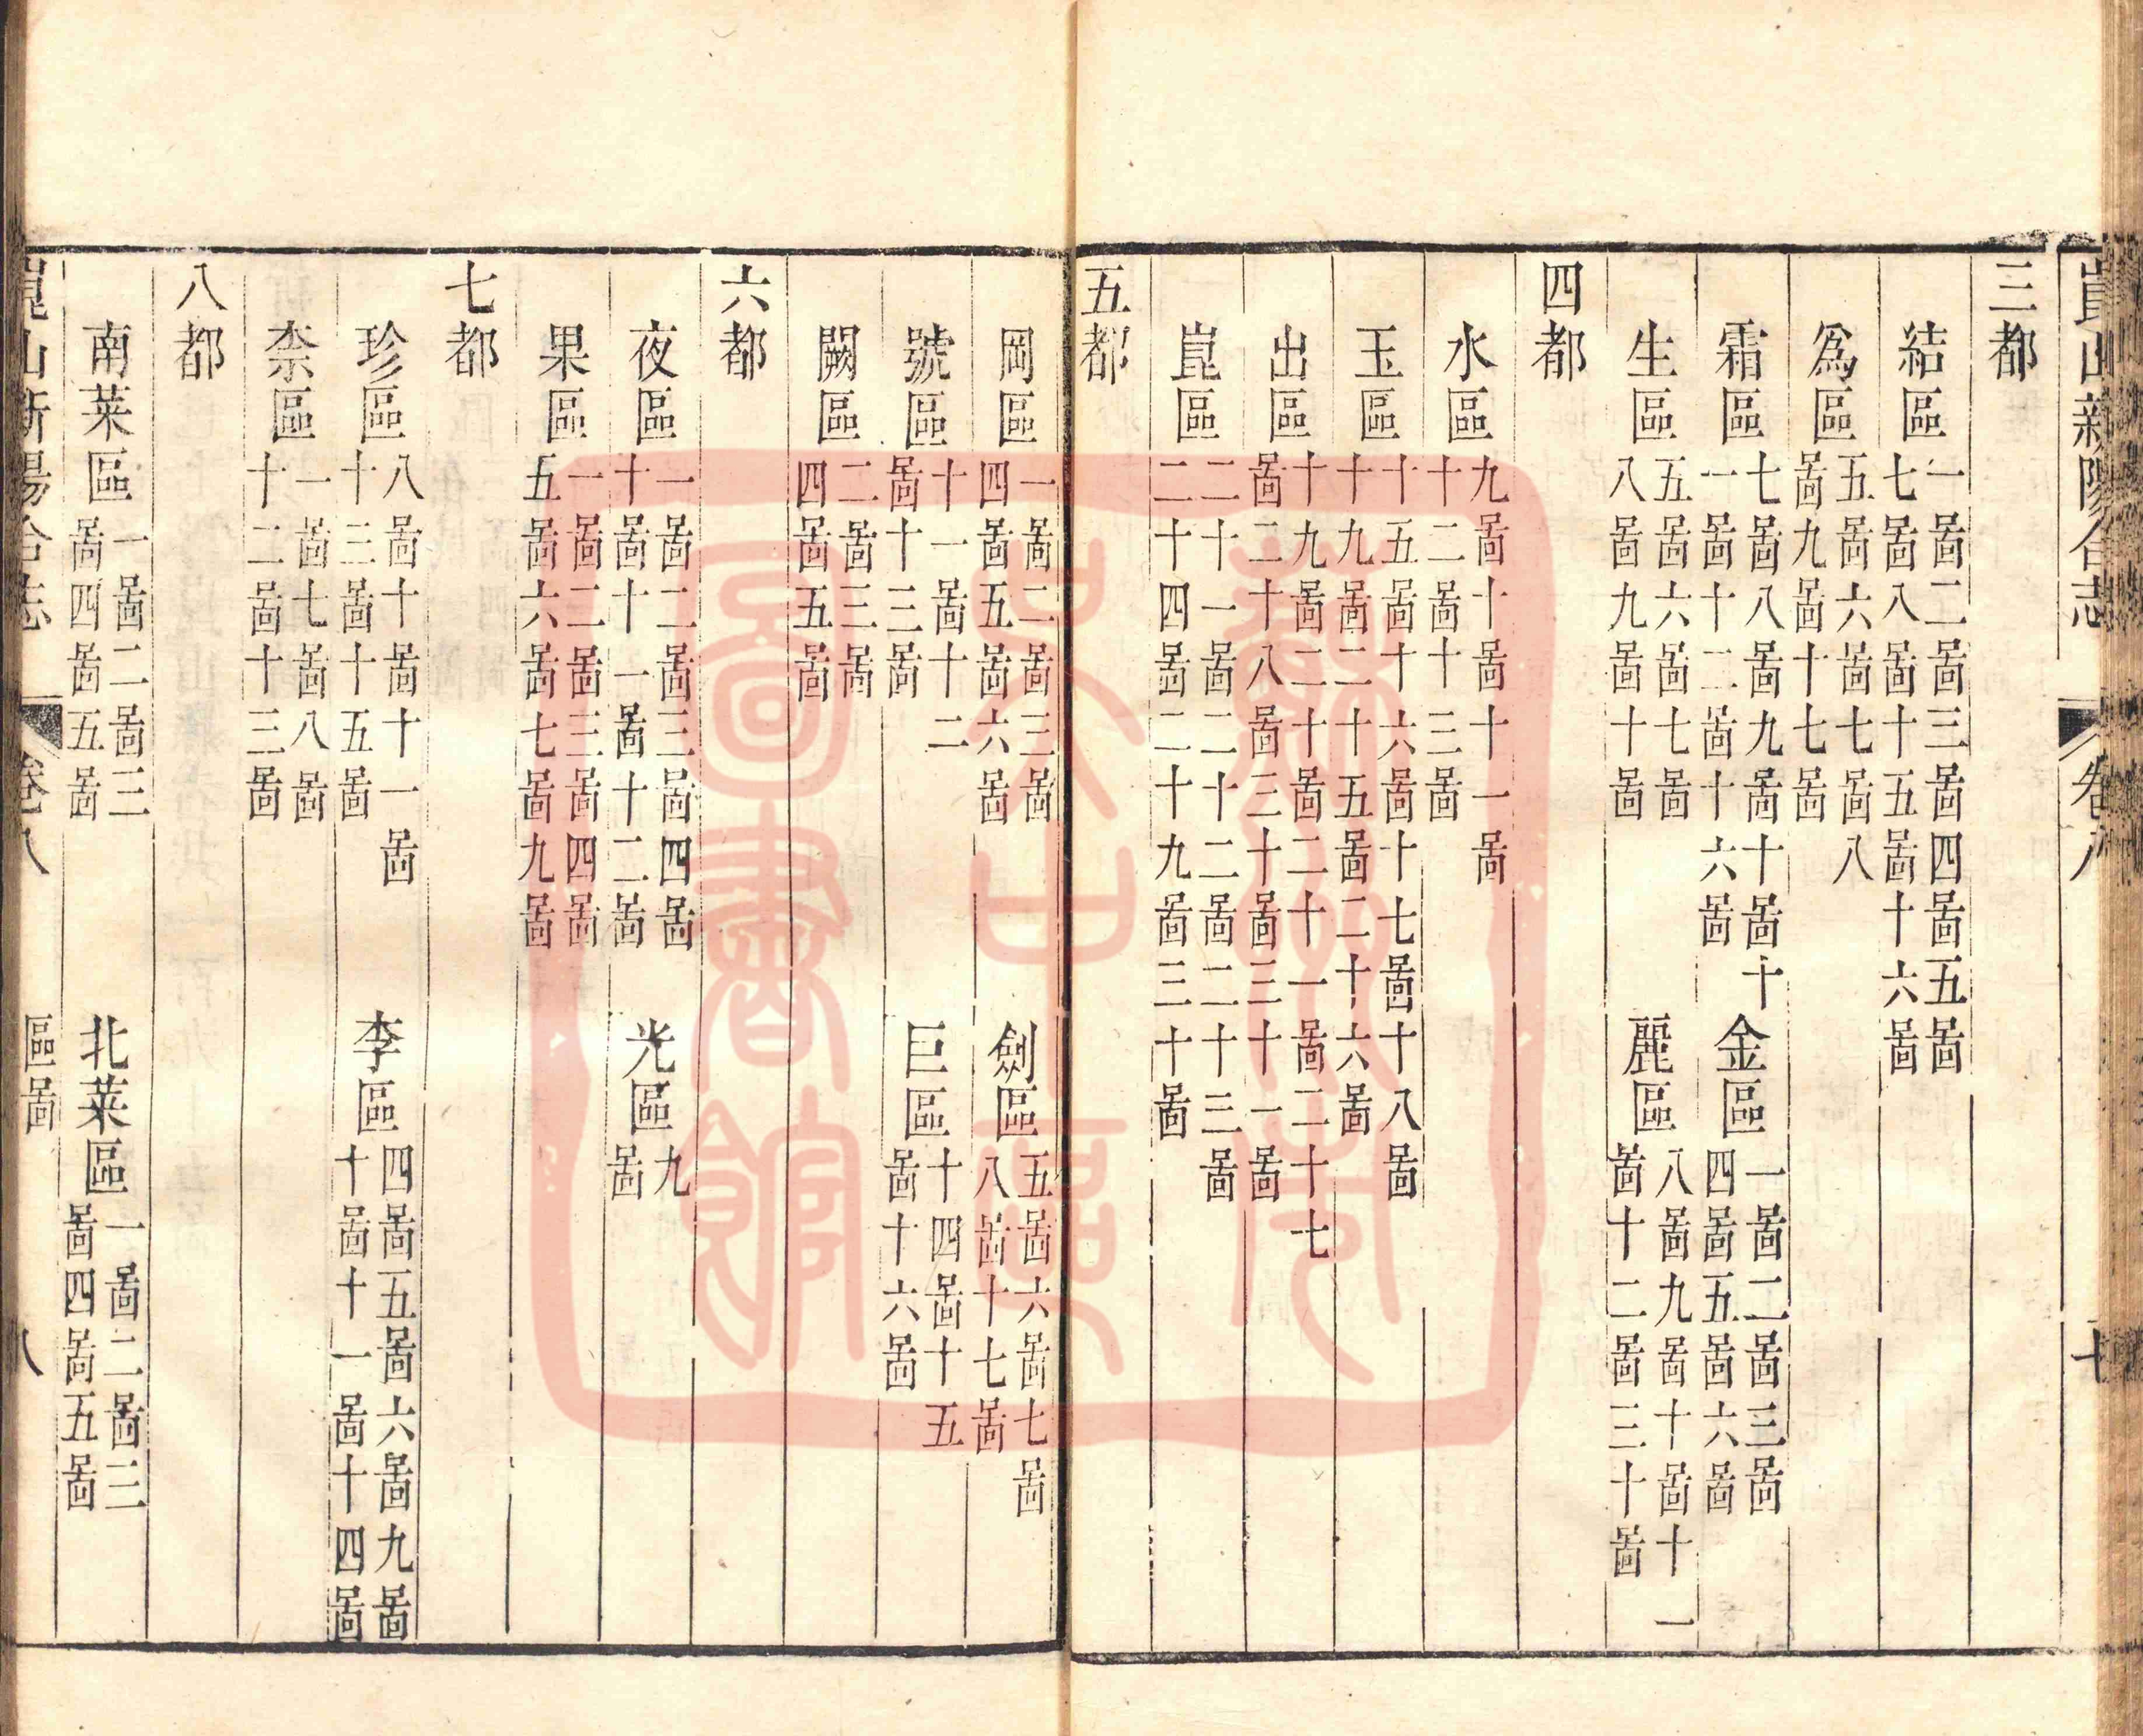 崑山新陽合志 卷八 七
三都
結區 一啚二啚三啚四啚五啚
七啚八啚十五啚十六啚
爲區 五啚六啚七啚八
啚九啚十七啚
霜區 七啚八啚九啚十啚十
一啚十二啚十六啚
金區 一啚二啚三啚
四啚五啚六啚
生區 五啚六啚七啚
八啚九啚十啚
麗區 八啚九啚十啚十一
啚十二啚三十啚
四都
水區 九啚十啚十一啚
十二啚十三啚
玉區 十五啚十六啚十七啚十八啚
十九啚二十五啚二十六啚
出區 十九啚二十啚二十一啚二十七
啚二十八啚三十啚三十一啚
崑區 二十一啚二十二啚二十三啚
二十四啚二十九啚三十啚
五都
岡區 一啚二啚三啚
四啚五啚六啚
劍區 五啚六啚七啚
八啚十七啚
號區 十一啚十二
啚十三啚
巨區 十四啚十五
啚十六啚
闕區 二啚三啚
四啚五啚
六都
夜區 一啚二啚三啚四啚
十啚十一啚十二啚
光區 九
啚
果區 一啚二啚三啚四啚
五啚六啚七啚九啚
七都
珍區 八啚十啚十一啚
十三啚十五啚
李區 四啚五啚六啚九啚
十啚十一啚十四啚
柰區 一啚七啚八啚
十二啚十三啚
八都
南菜區 一啚二啚三
啚四啚五啚
北菜區 一啚二啚三
啚四啚五啚
崑山新陽合志 卷八 區啚 八
蘇州市
吳中區
圖書館